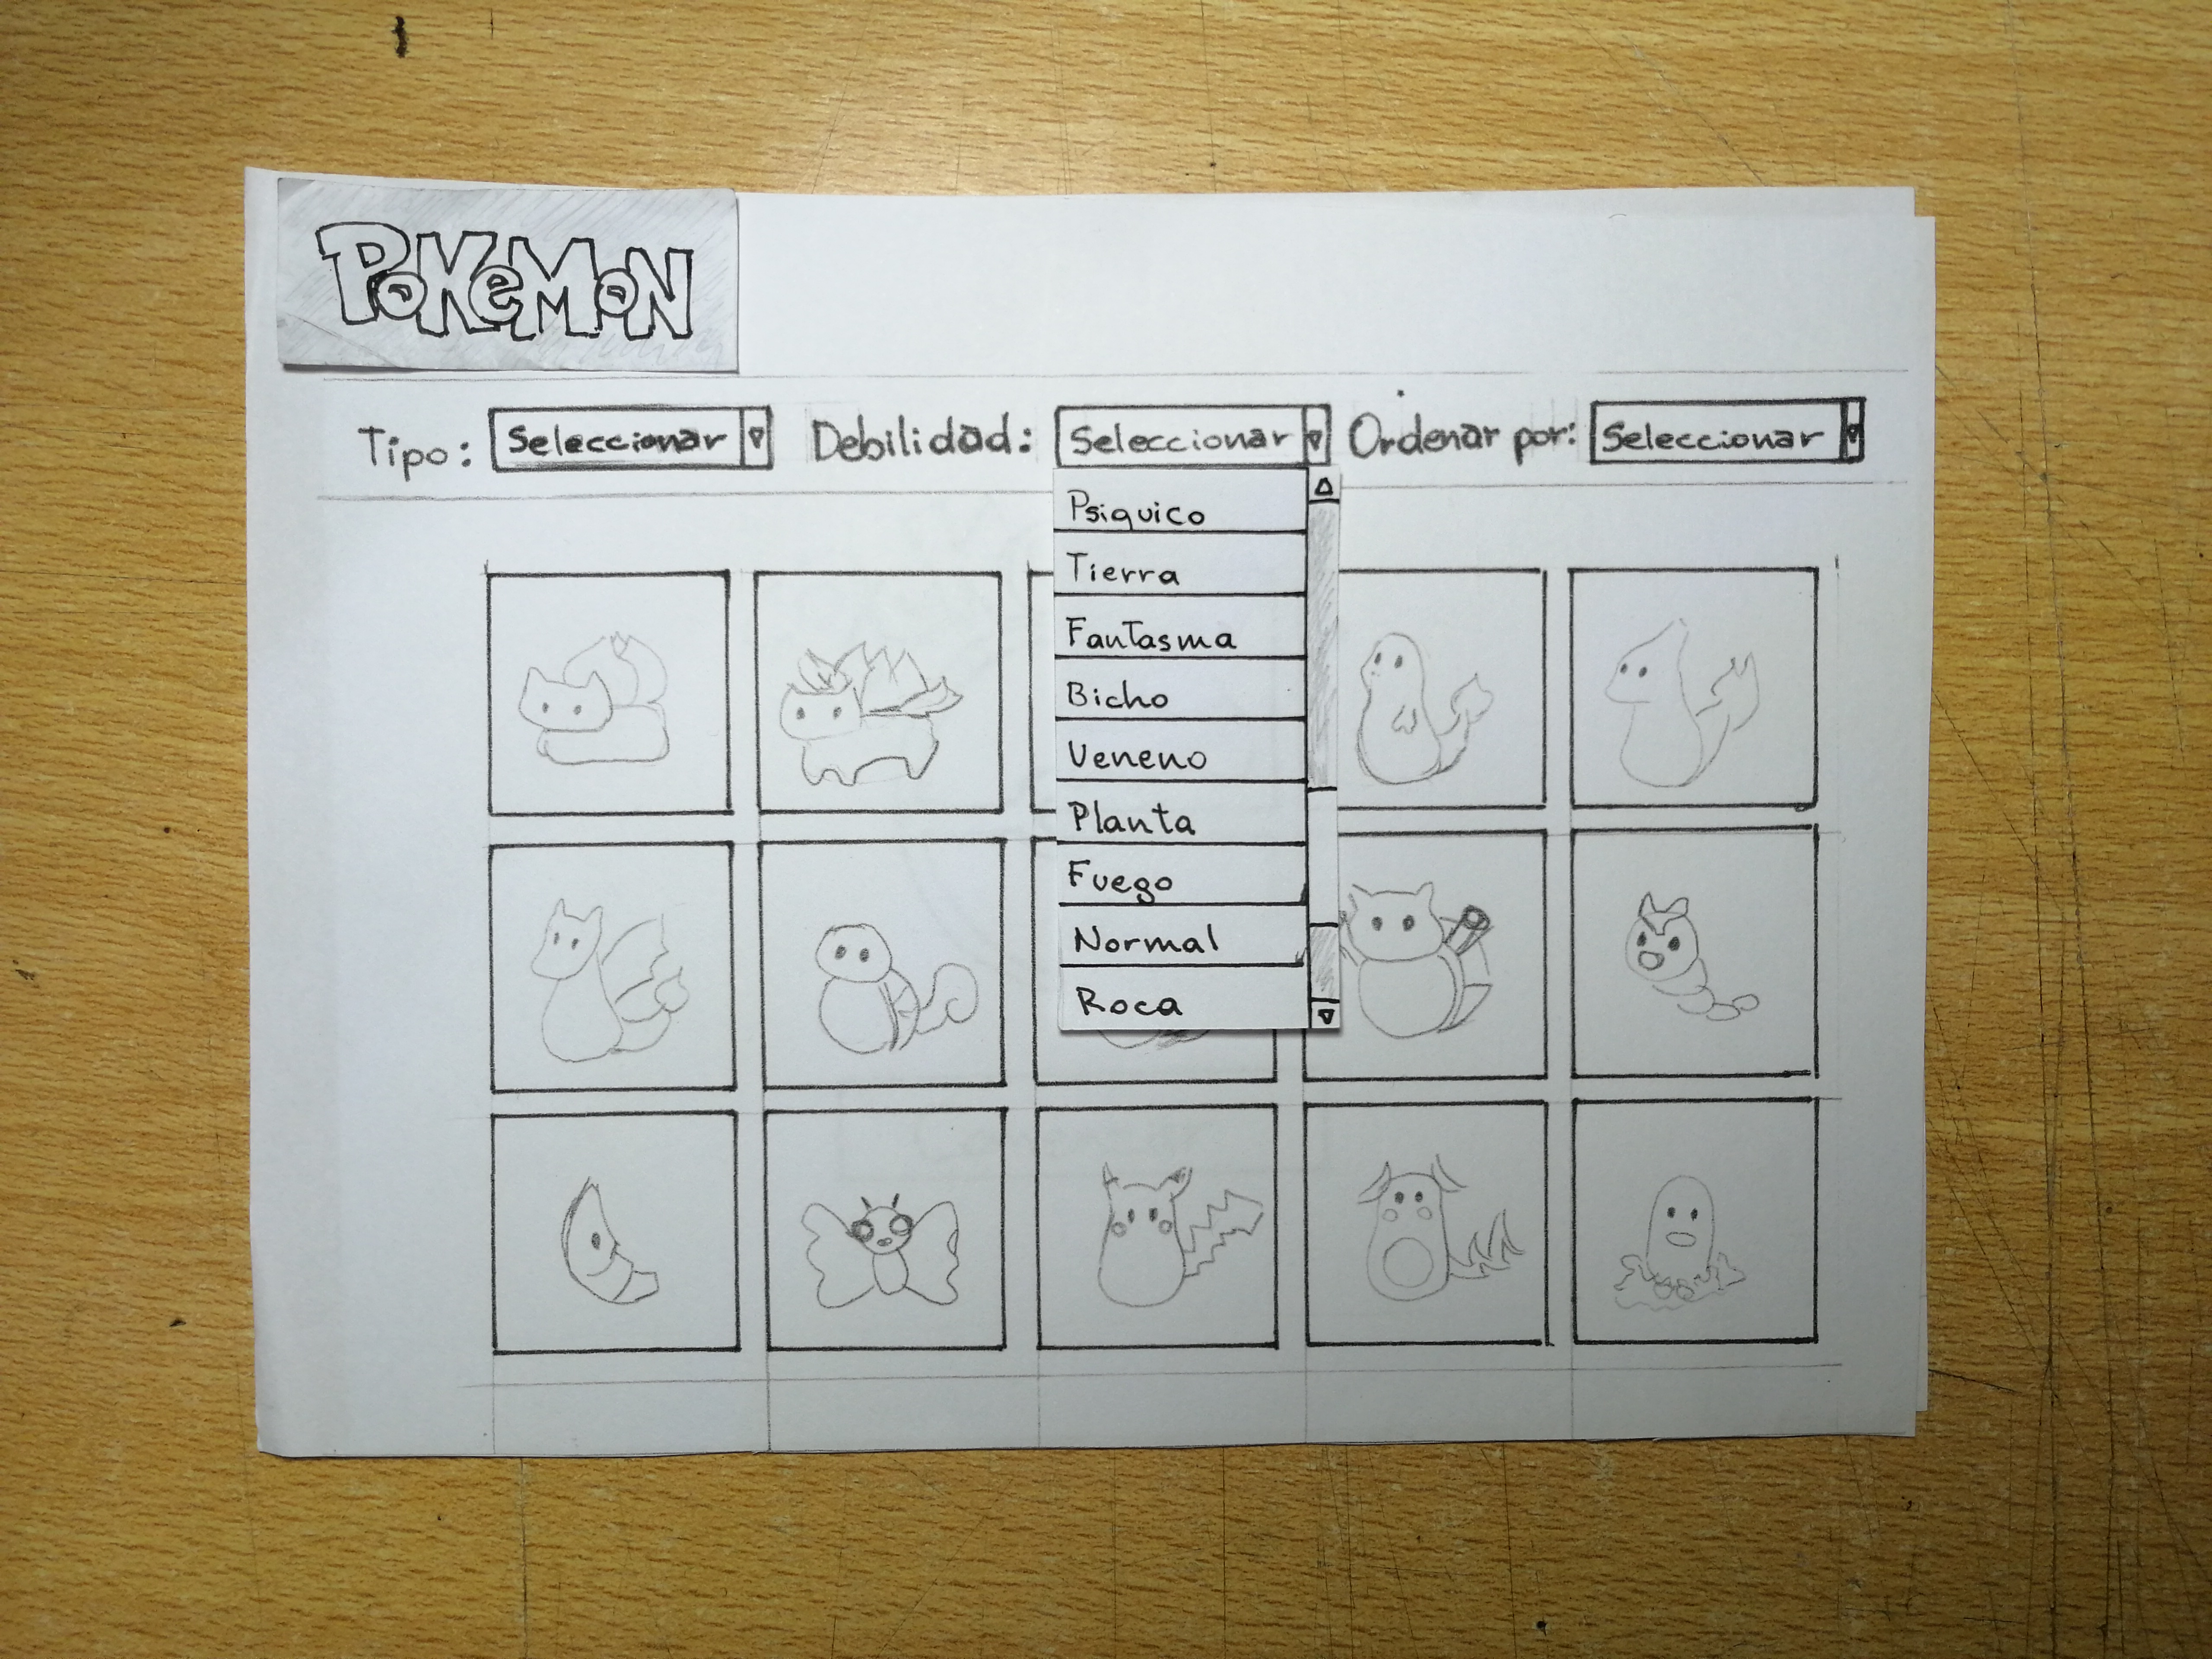 PoKeMoN
Tipo: Seleccionar Debilidad: Seleccionar Ordenar por: Seleccionar
Psiquico
Tierra
Fantasma
Bicho
Veneno
Planta
Fuego
Normal
Roca